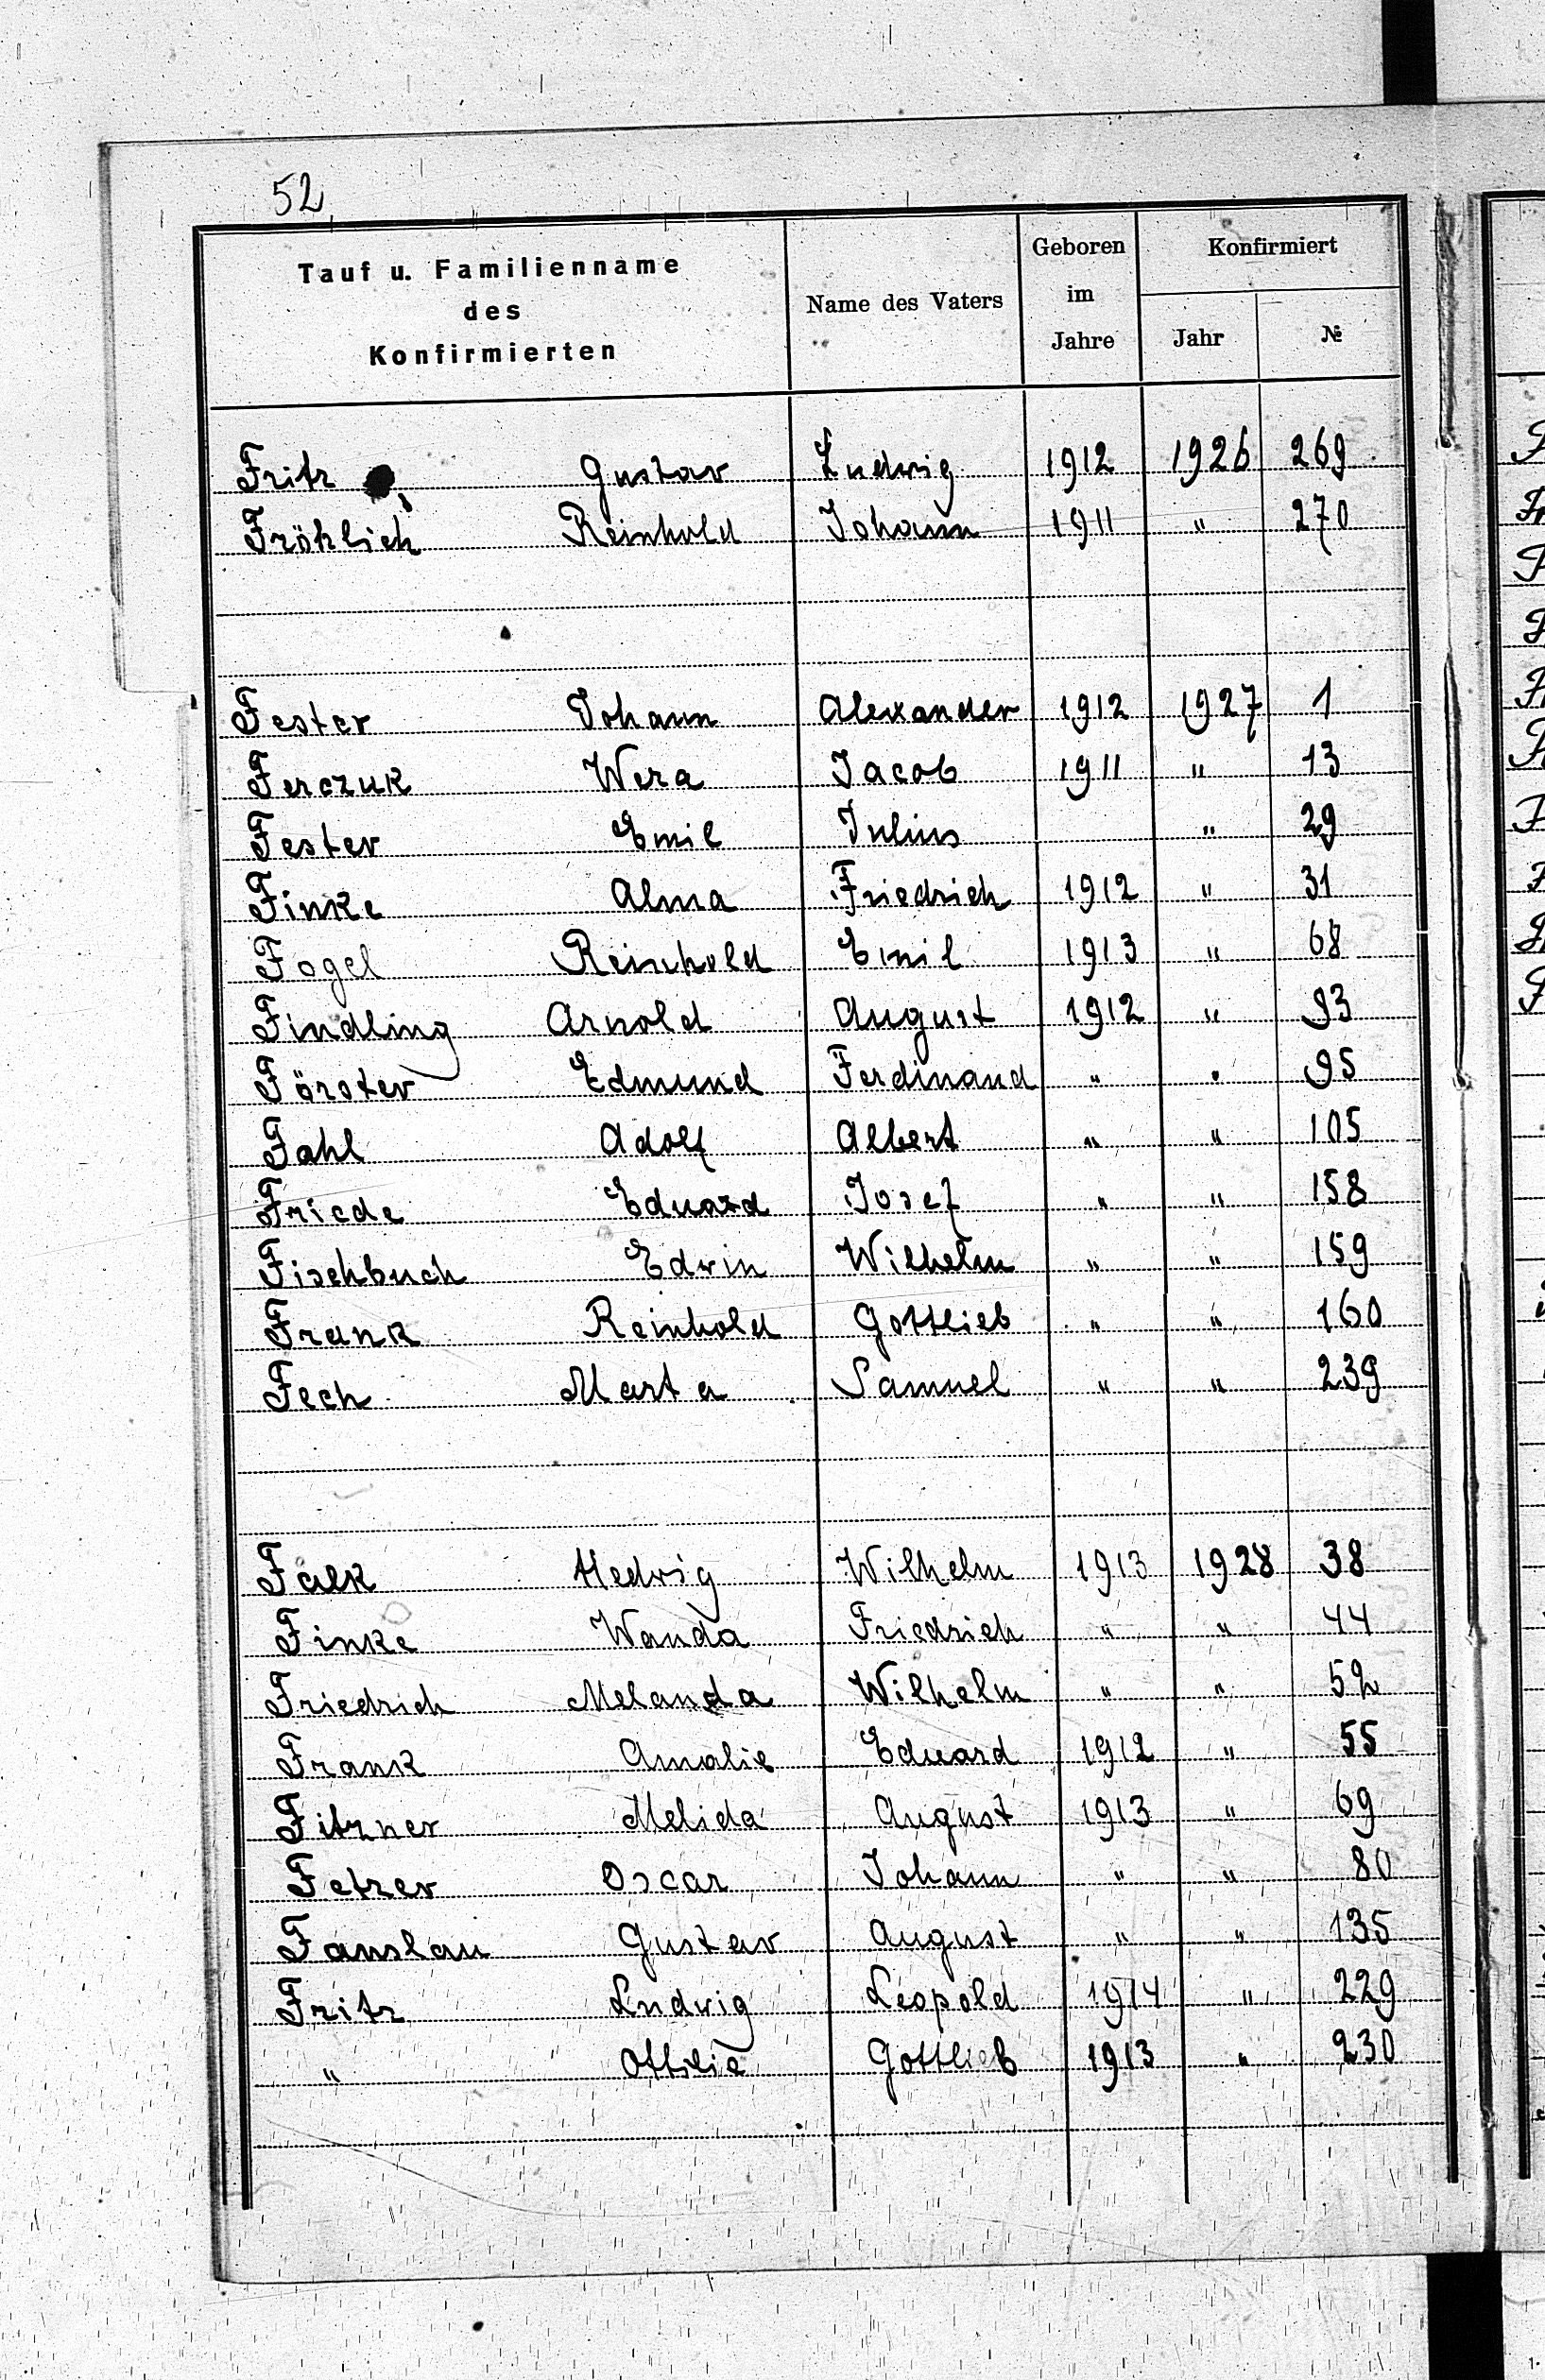 52
Tauf u. Familienname des Konfirmierten Name des Vaters Geboren im Jahre Konfirmiert Jahr №
Fritz Gustav Ludwig 1912 1926 269
Fröhlich Reinhold Johann 1911 " 270
Fester Johann Alexander 1912 1927 1
Ferczuk Wera Jacob 1911 " 13
Fester Emil Julius " 29
Finke Alma Friedrich 1912 " 31
Fogel Reinhold Emil 1913 " 68
Findling Arnold August 1912 " 93
Förster Edmund Ferdinand " " 95
Fahl Adolf Albert " " 105
Friede Eduard Josef " " 158
Fischbuch Edwin Wilhelm " " 159
Frank Reinhold Gottlieb " " 160
Fech Marta Samuel " " 239
Falk Hedwig Wilhelm 1913 1928 38
Finke Wanda Friedrich " " 44
Friedrich Melanda Wilhelm " " 52
Frank Amalie Eduard 1912 " 55
Fitzner Melida August 1913 " 69
Fetzer Oscar Johann " " 80
Fanslau Gustav August " " 135
Fritz Ludwig Leopold 1914 " 229
" Ottilie Gottlieb 1913 " 230